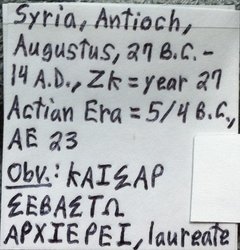 Syria, Antioch,
Augustus, 27 B.C. -
14 A.D., Zk = year 27
Actian Era = 5/4 B.C.,
AE 23
Obv.: ΚΑΙΣΑΡ
ΣΕΒΑΣΤΩ
ΑΡΧΙΕΡΕΙ, laureate